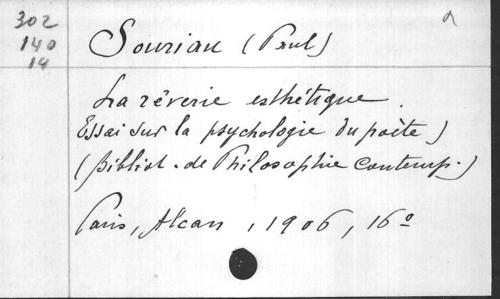 302
140
14
Souriau (Paul)
La rêverie esthétique.
Essai sur la psychologie du poète)
(Bibliot. de Philosophie contemp.)
Paris, Alcan, 1906, 16º